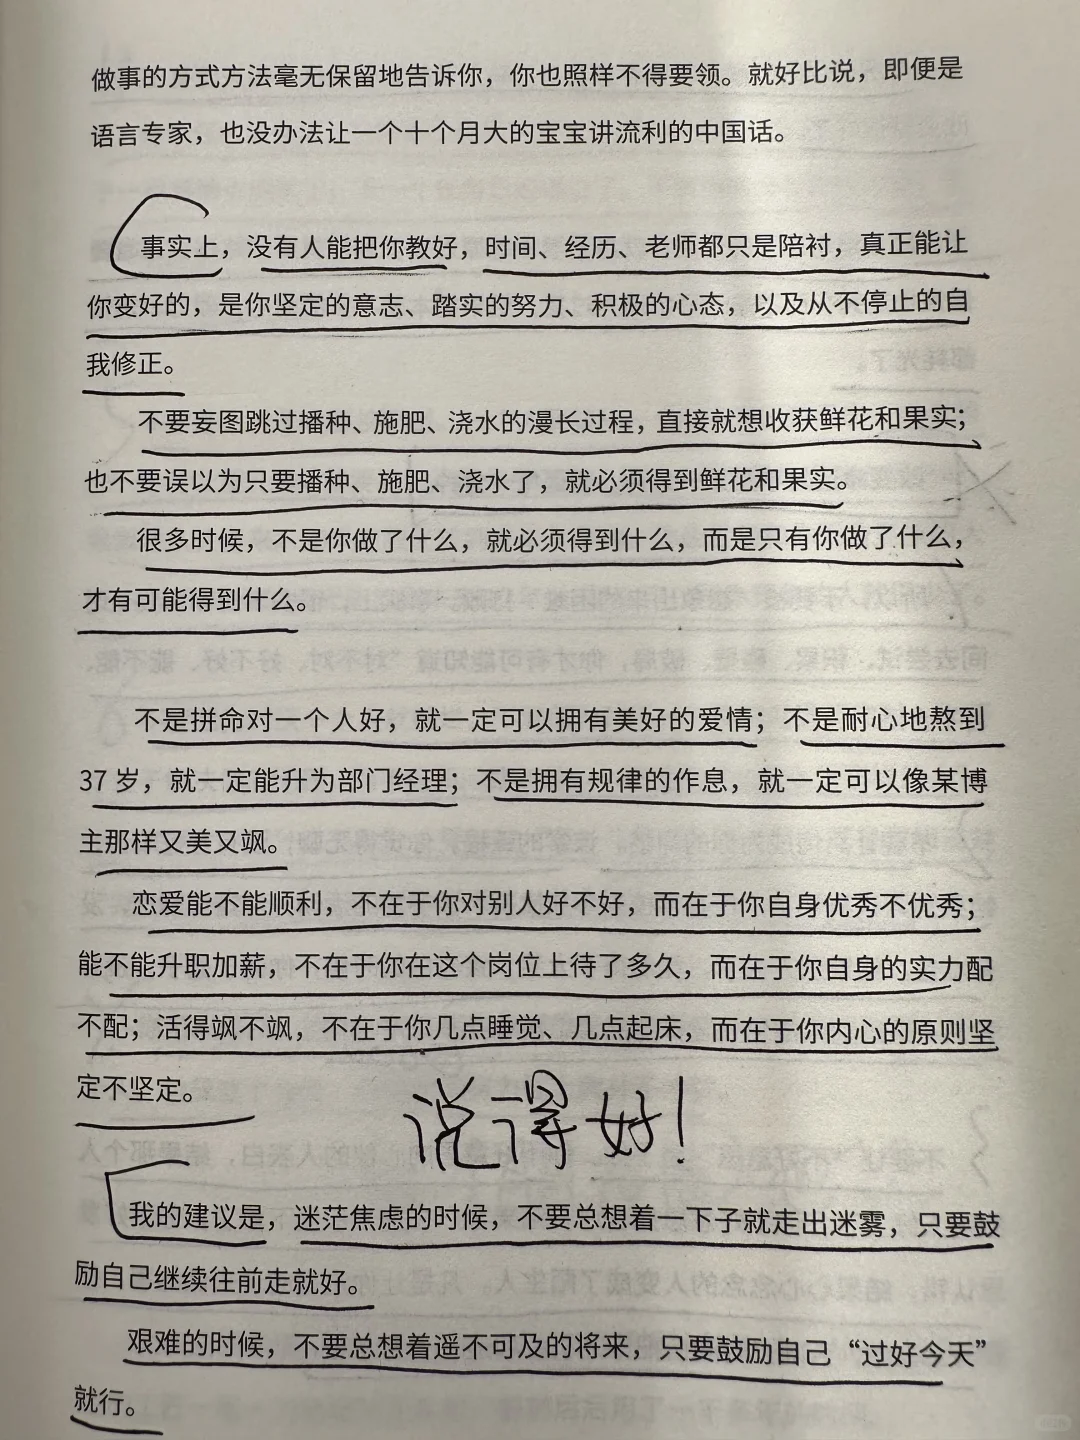 做事的方式方法毫无保留地告诉你，你也照样不得要领。就好比说，即便是
语言专家，也没办法让一个十个月大的宝宝讲流利的中国话。
事实上，没有人能把你教好，时间、经历、老师都只是陪衬，真正能让
你变好的，是你坚定的意志、踏实的努力、积极的心态，以及从不停止的自
我修正。
不要妄图跳过播种、施肥、浇水的漫长过程，直接就想收获鲜花和果实；
也不要误以为只要播种、施肥、浇水了，就必须得到鲜花和果实。
很多时候，不是你做了什么，就必须得到什么，而是只有你做了什么，
才有可能得到什么。
不是拼命对一个人好，就一定可以拥有美好的爱情；不是耐心地熬到
37 岁，就一定能升为部门经理；不是拥有规律的作息，就一定可以像某博
主那样又美又飒。
恋爱能不能顺利，不在于你对别人好不好，而在于你自身优秀不优秀；
能不能升职加薪，不在于你在这个岗位上待了多久，而在于你自身的实力配
不配；活得飒不飒，不在于你几点睡觉、几点起床，而在于你内心的原则坚
定不坚定。
说得好！
我的建议是，迷茫焦虑的时候，不要总想着一下子就走出迷雾，只要鼓
励自己继续往前走就好。
艰难的时候，不要总想着遥不可及的将来，只要鼓励自己“过好今天”
就行。